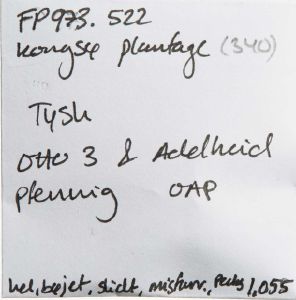 FP973.522
Kongsø plantage (340)
Tysk
Otto 3 & Adelheid
Pfennig OAP
hel, bøjet, slidt, misfarv., 1,055